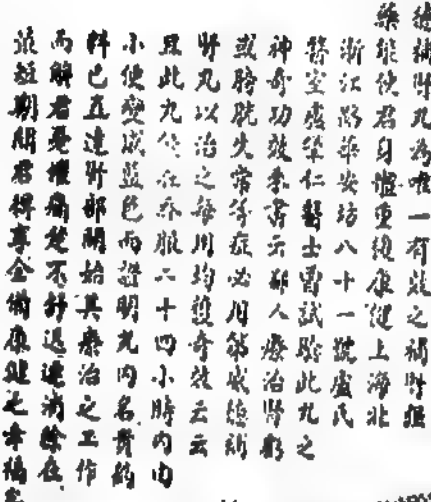 補腎丸為唯一有效之補腎恒
藥能使君身體重復康健上海北
浙江路華安坊八十一號盧氏
醫室盧肇仁醫士嘗試驗此丸之
神奇功效來書云鄙人療治腎虧
或膀胱失常等症必用第威德補
腎丸以治之每用均獲奇效云云
且此丸於在吞服二十四小時內由
小便變成藍色而證明尤內名貴的
料已直達腎部開始其療治之工作
而解君憂懼痛楚不舒迅速消除在
最短期間君得享全備康健之幸福